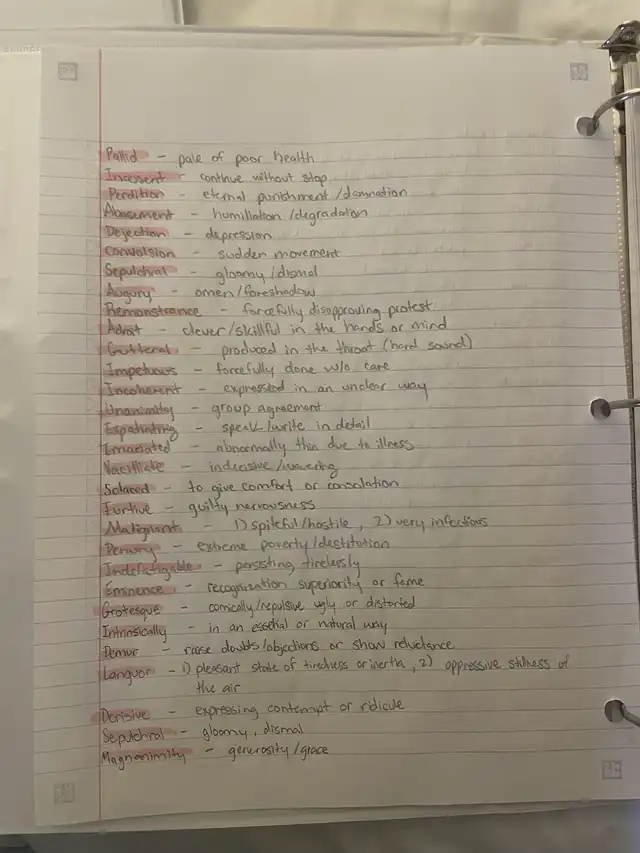 Pallid - pale of poor health
Incessent - continue without stop
Perdition - eternal punishment/damnation
Abasement - humiliation/degradation
Dejection - depression
Convulsion - sudden movement
Sepulchral - gloomy/dismal
Augury - omen/foreshadow
Remonstrance - forcefully disapproving protest
Adroit - clever/skillful in the hands or mind
Gutteral - produced in the throat (hard sound)
Impetuous - forcefully done w/o care
Incoherent - expressed in an unclear way
Unanimity - group agreement
Expatiating - speak/write in detail
Emaciated - abnormally thin due to illness
Vacillate - indecisive/wavering
Solaced - to give comfort or consolation
Furtive - guilty nervousness
Malignant - 1) spiteful/hostile, 2) very infectious
Penury - extreme poverty/destitution
Indefatigable - persisting tirelessly
Eminence - recognization superiority or fame
Grotesque - comically/repulsive ugly or distorted
Intrinsically - in an essetial or natural way
Demur - raise doubts/objections or show reluctance
Languor - 1) pleasant state of tiredness or inertia, 2) oppressive stillness of
the air
Derisive - expressing contempt or ridicule
Sepulchral - gloomy, dismal
Magnanimity - generosity/grace